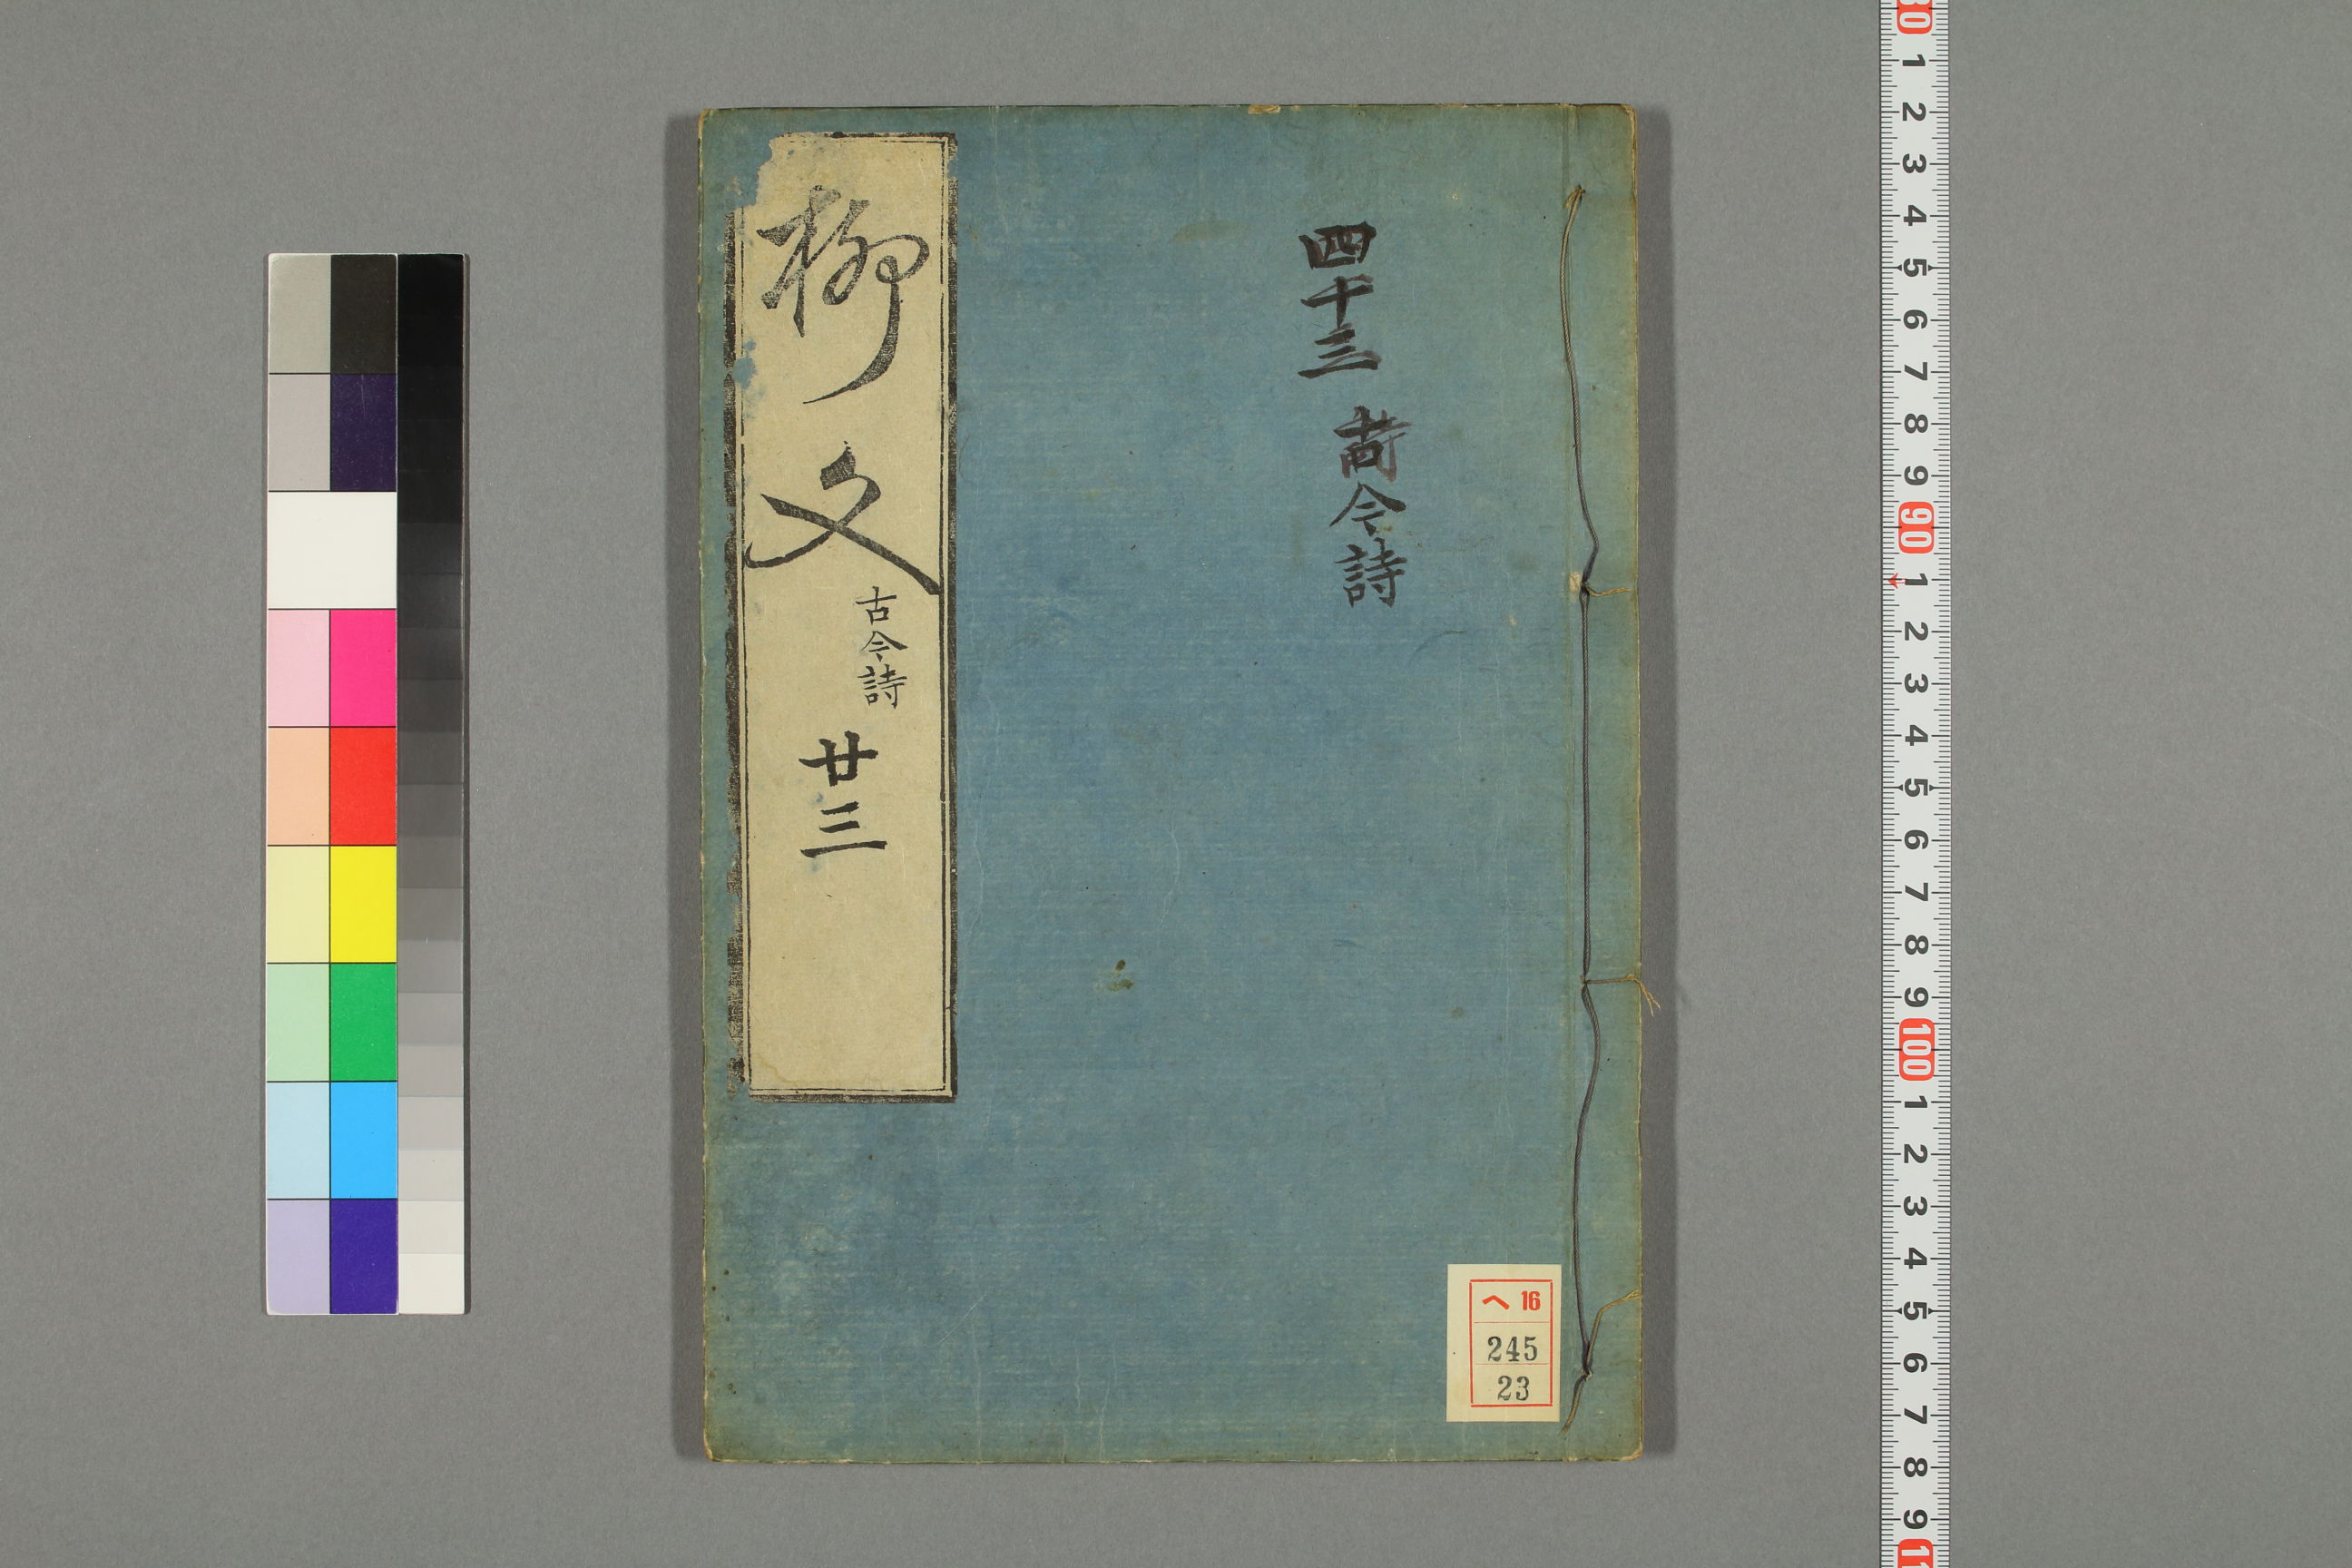 四十三
古今詩
柳文
古今詩
廿三
ヘ 16
245
23
80 1 2 3 4 5 6 7 8 9 90 1 2 3 4 5 6 7 8 9 100 1 2 3 4 5 6 7 8 9